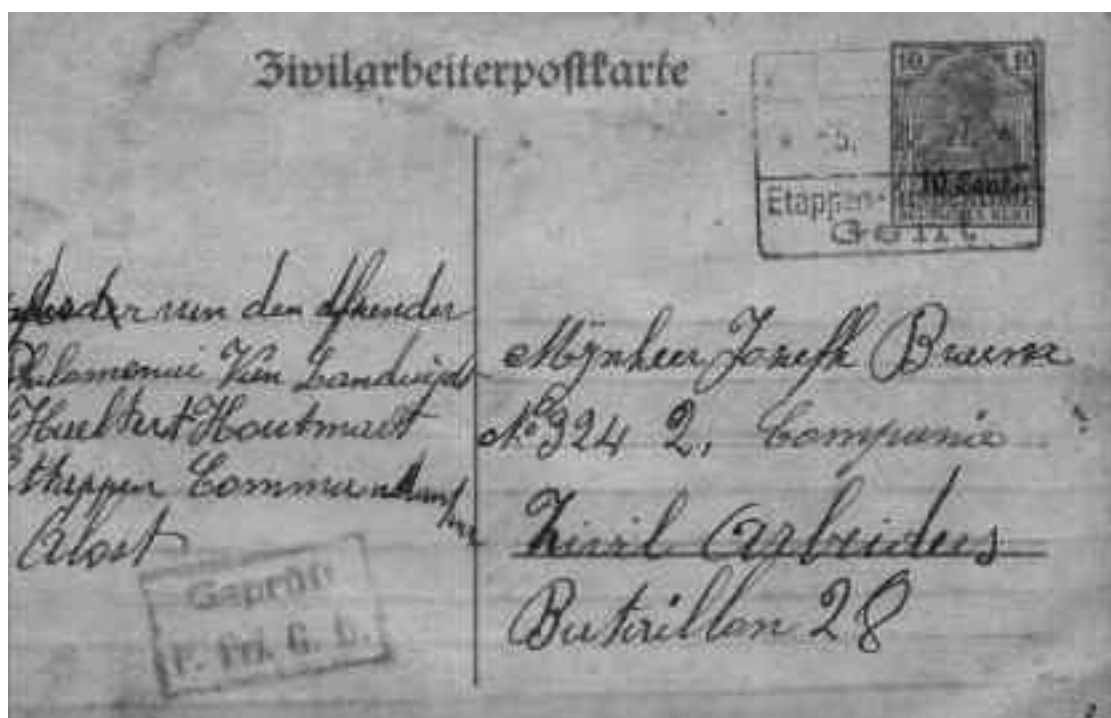 Zivilarbeiterpostkarte
10 10
-5.
10 Cent.
Etappen-
Gent
van den afzender
Van Landuijdt
Houtmart
Etappen Commandantur
Alost
Geprüft
P. Prü. G. b.
Mijnheer Jozefh
No 324 2, Compania
Zivil Arbeiders
Bataillon 28